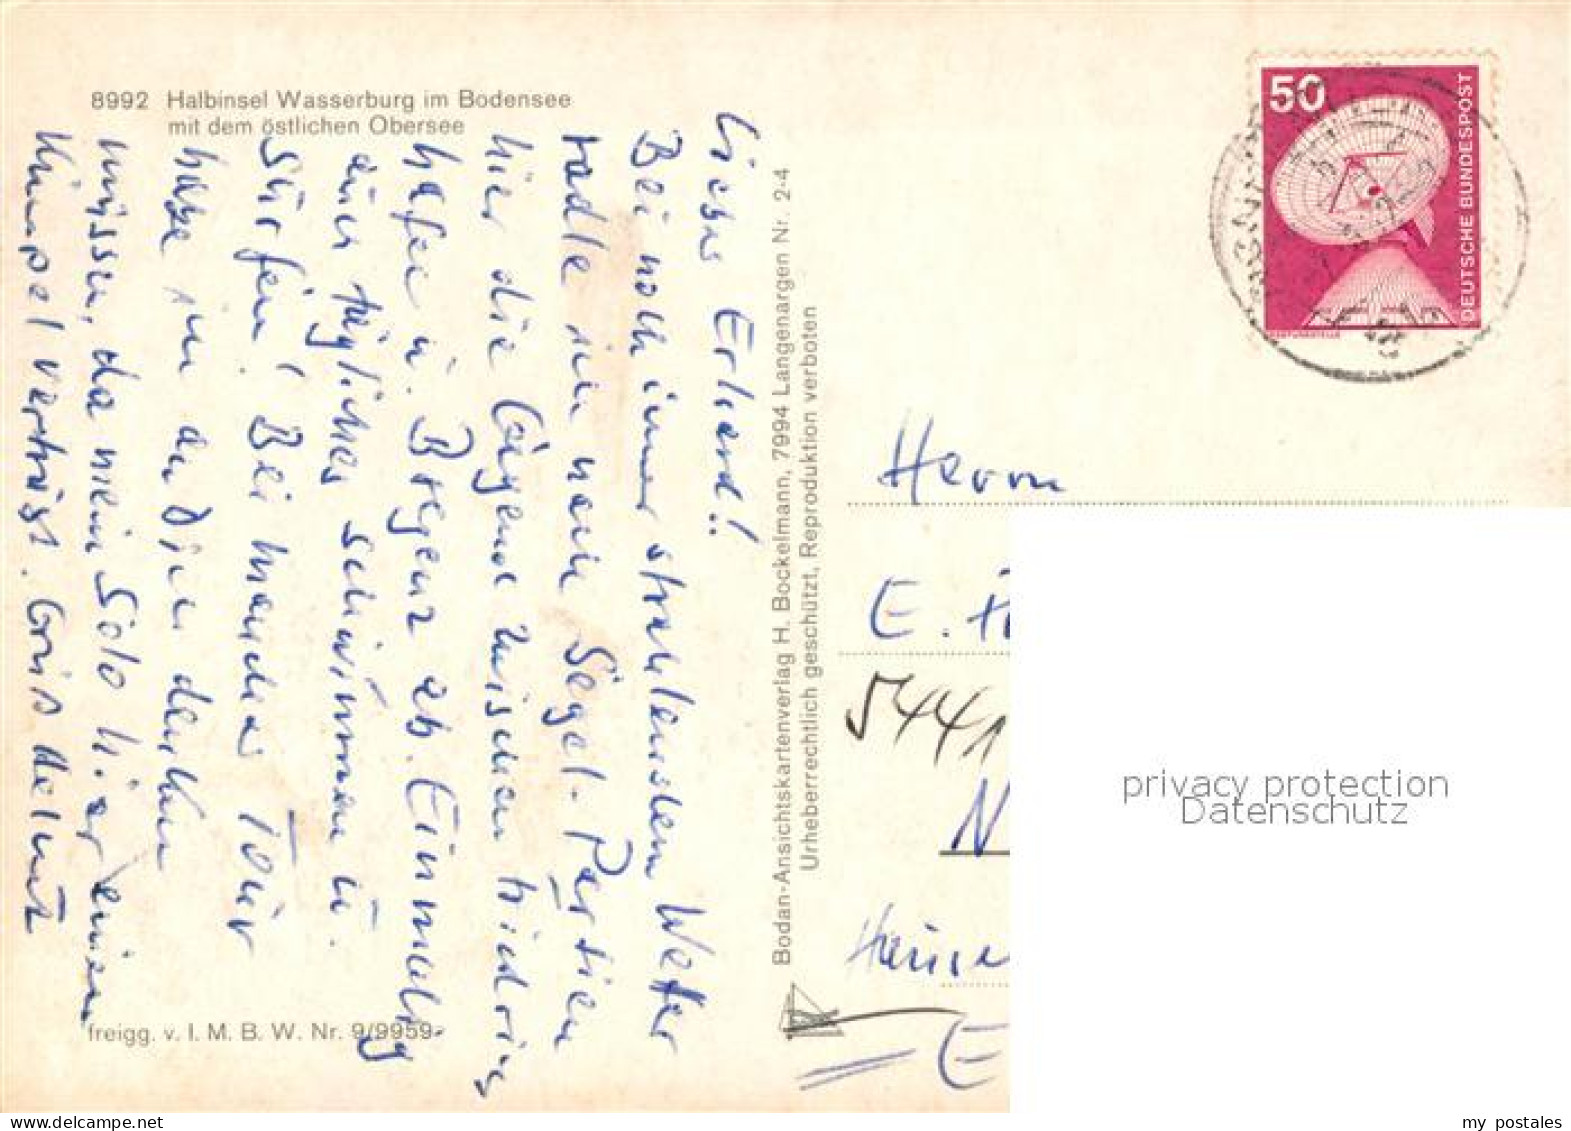 8992 Halbinsel Wasserburg im Bodensee
mit dem östlichen Obersee
Lieber Erhard!!
Bei noch immer strahlendem Wetter
radle in mein Segel-Partien
hier die Gegend zwischen
hafen u. Bregenz ab. Einmalig
euer tägliches schwimmen u.
Surfen! Bei mancher Tour
habe ich an Dich denken
müssen, da mein Solo hier einen
Kumpel verträgt. Gruß Helmut
freigg. v. I. M. B. W. Nr. 9/9959
Bodan-Ansichtskartenverlag H. Bockelmann, 7994 Langenargen Nr. 2-4
Urheberrechtlich geschützt, Reproduktion verboten
50
DEUTSCHE BUNDESPOST
Herrn
E.
5441
N
E
privacy protection
Datenschutz
delcampe.net
my_postales